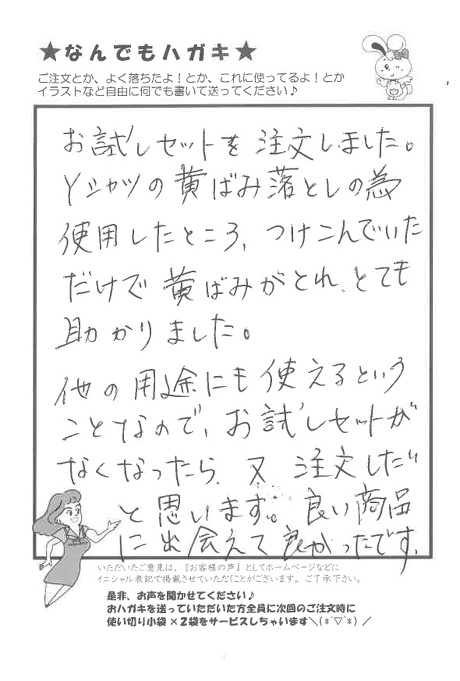 ★なんでもハガキ★
ご注文とか、よく落ちたよ！とか、これに使ってるよ！とか
イラストなど自由に何でも書いて送ってください♪
お試しセットを注文しました。
Yシャツの黄ばみ落としの為
使用したところ、つけこんでいた
だけで黄ばみがとれ、とても
助かりました。
他の用途にも使えるという
ことなので、お試しセットが
なくなったら、又注文したい
と思います。良い商品
に出会えて良かったです。
いただいたご意見は、『お客様の声』としてホームページなどに
イニシャル表記で掲載させていただくことがございます。ご了承下さい。
是非、お声を聞かせてください♪
おハガキを送っていただいた方全員に次回のご注文時に
使い切り小袋×2袋をサービスしちゃいます＼(*´▽`*)／